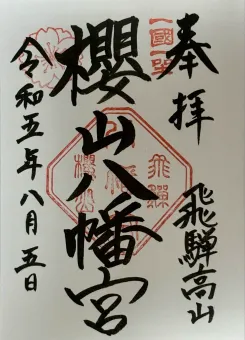 奉拝
飛騨高山
一國一社
櫻山八幡宮
令和五年八月五日